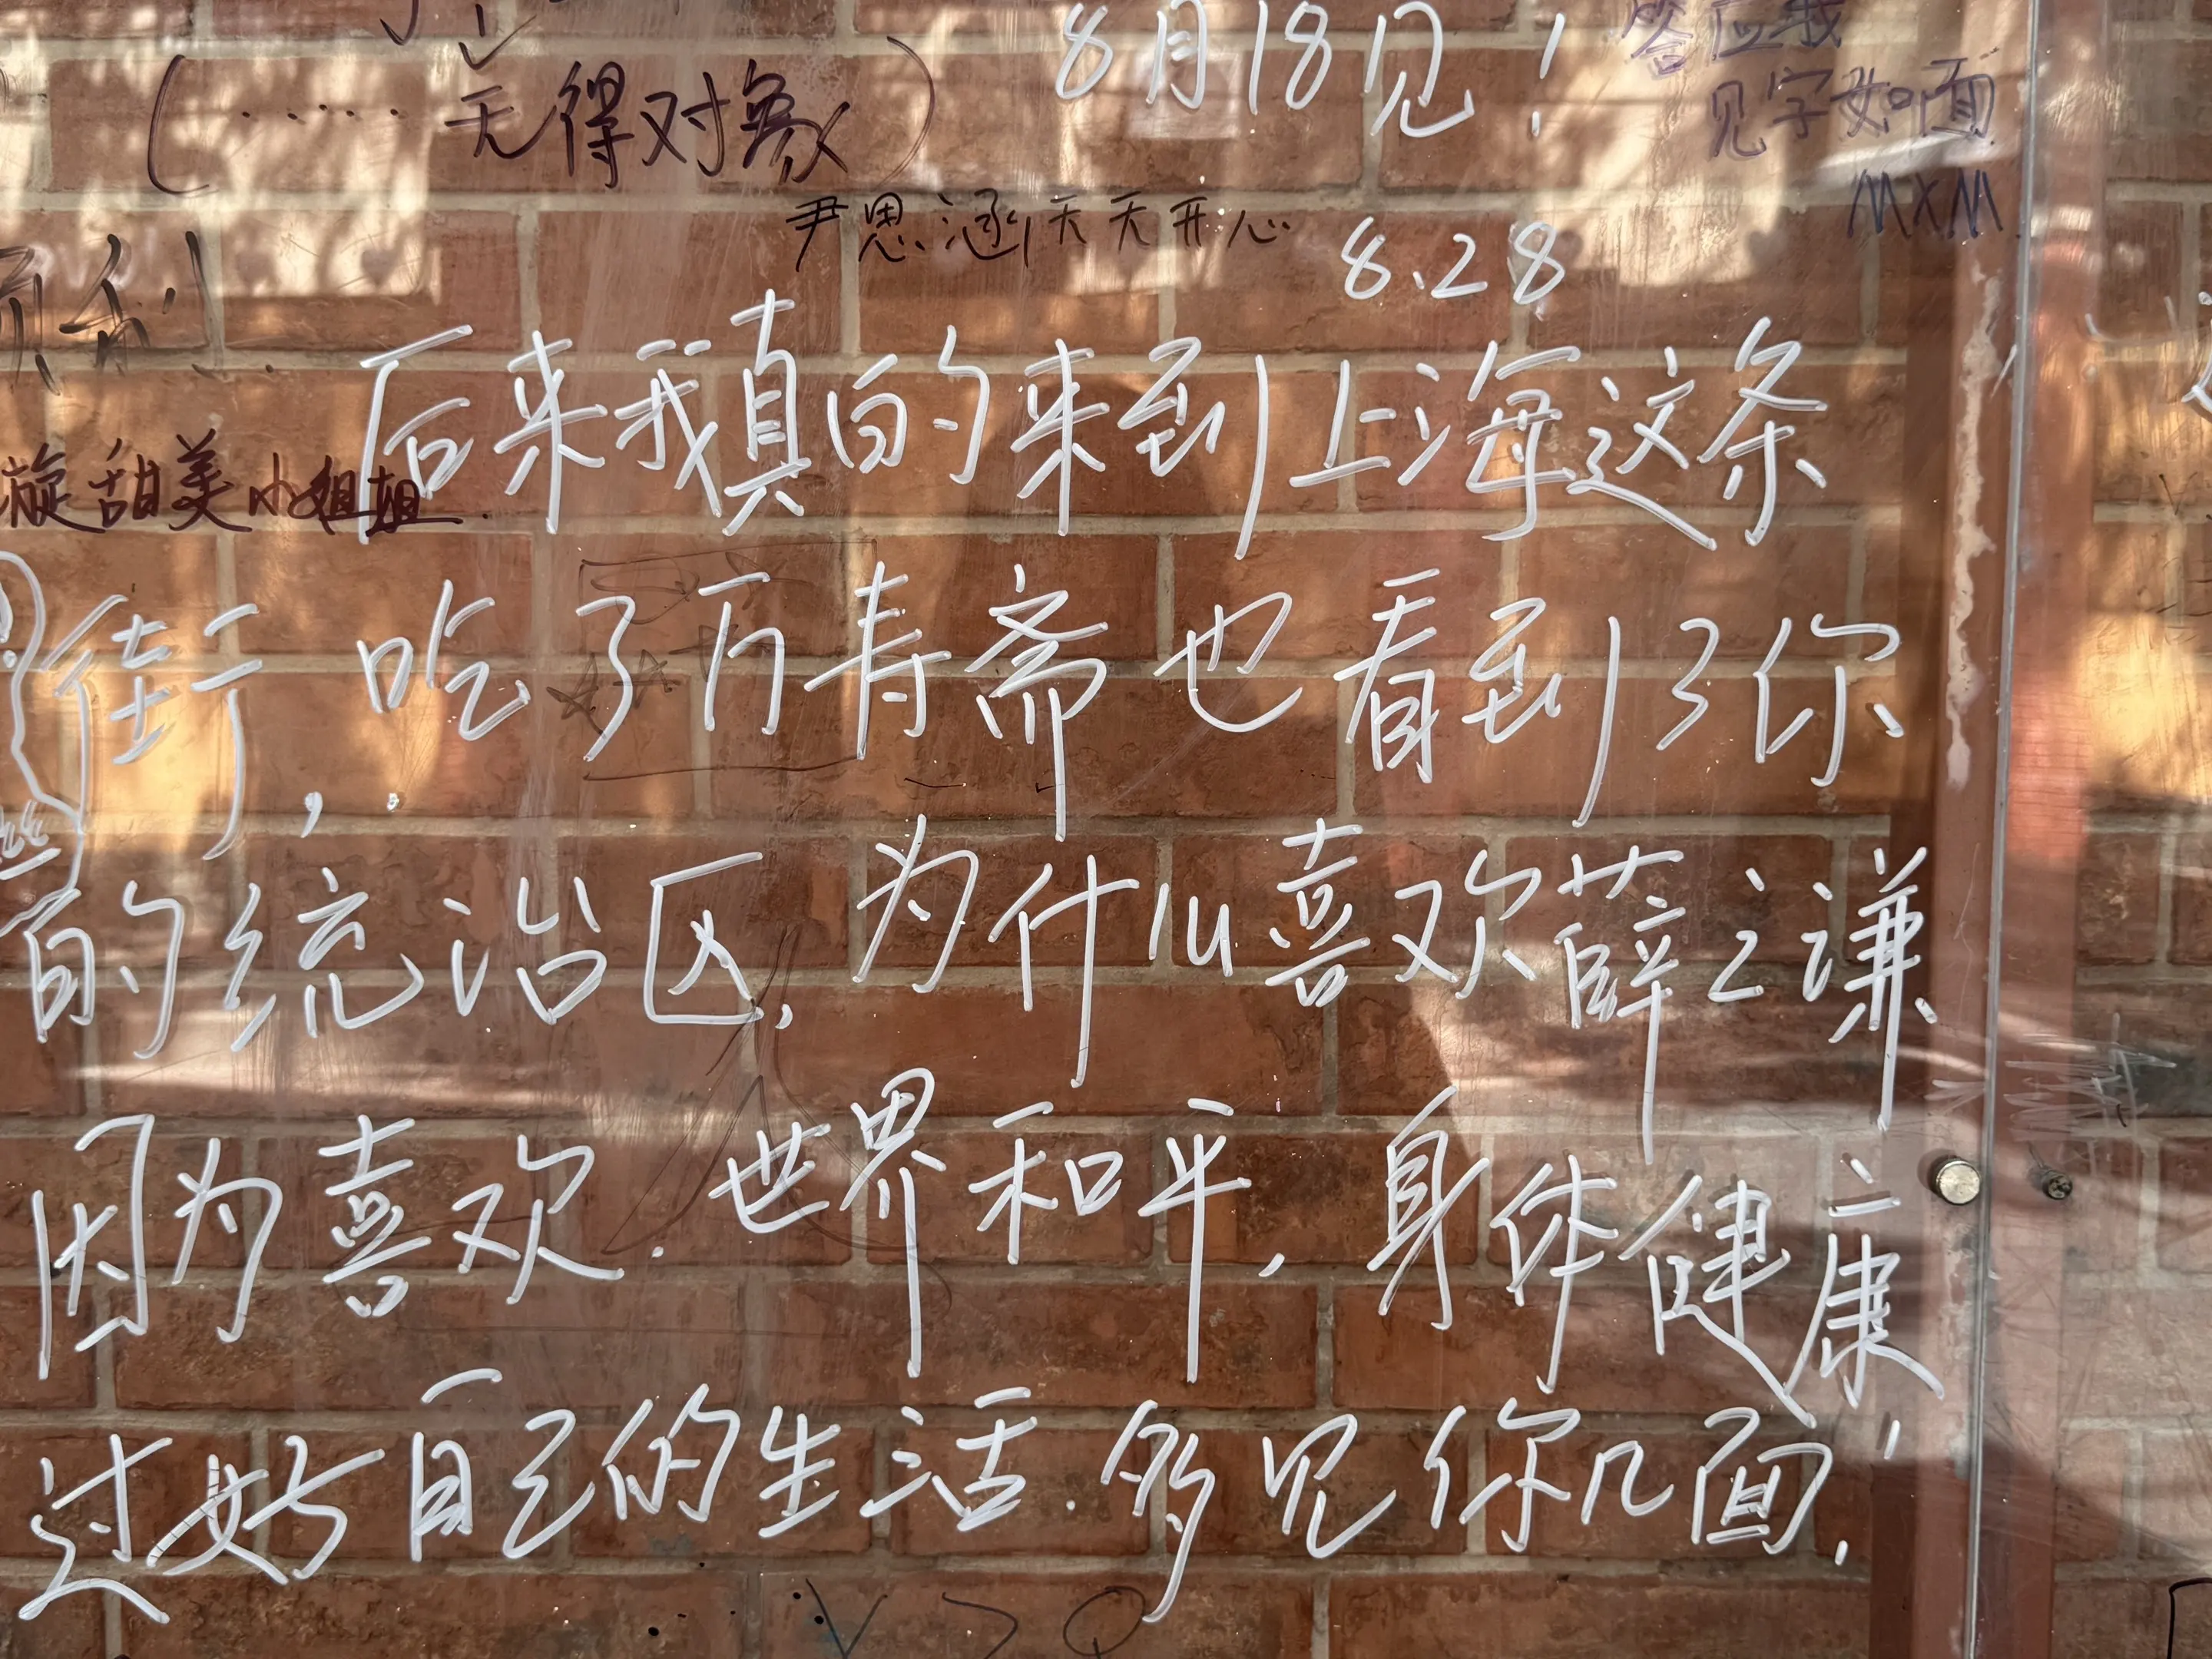 8月18见！
答应我
(······无得对象)
见字如面
MXM
尹思涵天天开心
8.28
后来我真的来到上海这条
旋甜美小姐姐.
街，吃了万寿斋也看到了你
的统治区,为什么喜欢薛之谦
因为喜欢.世界和平,身体健康,
过好自己的生活.多见你几面!